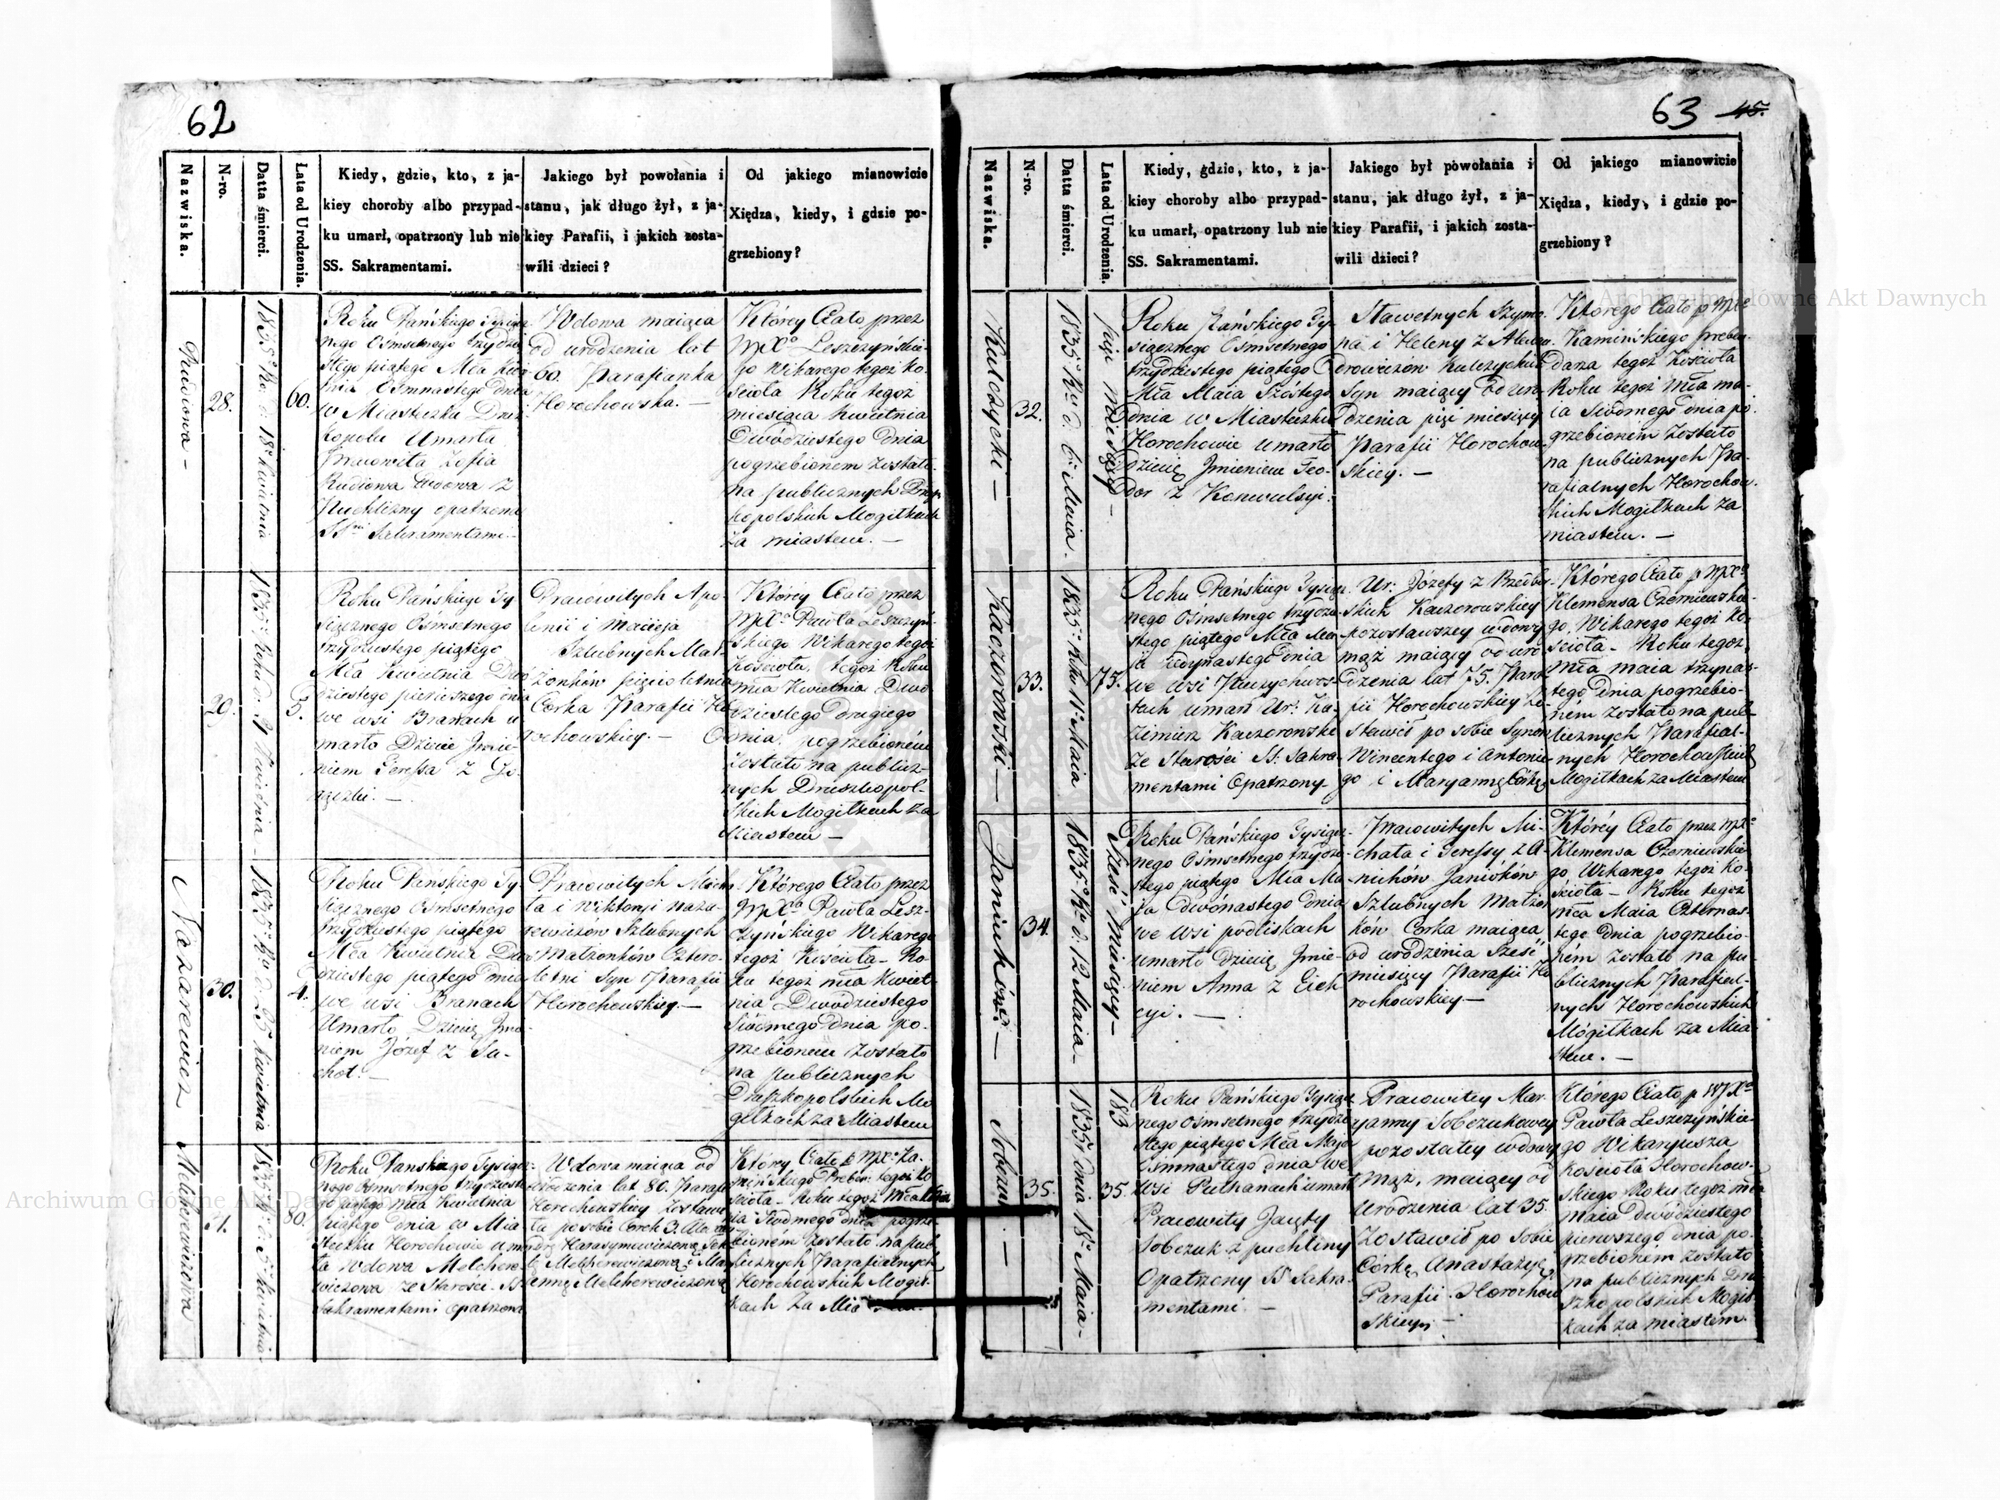 62
Nazwiska.
N-ro.
Datta śmierci.
Lata od Urodzenia.
Kiedy, gdzie, kto, z ja-
kiey choroby albo przypad-
ku umarł, opatrzony lub nie
SS. Sakramentami.
Jakiego był powołania i
stanu, jak długo żył, z ja-
kiey Parafii, i jakich zosta-
wili dzieci?
Od jakiego mianowicie
Xiędza, kiedy, i gdzie po-
grzebiony?
Rudiowa -
28.
1835 Ro. d. 18 Kwietnia
60.
Roku Pańskiego Tysiącz
nego Osmsetnego trzydzie
stego piątego Mca Kwie
tnia Osmnastego Dnia
w Miasteczku Druż
kopolu Umarła
Pracowita Zofia
Rudiowa Wdowa z
Puchliny opatrzona
SSmi Sakramentami.-
Wdowa maiąca
od urodzenia lat
60. Parafianka
Horochowska. -
Którey Ciało przez
WJXa Leszczyńskie-
go Wikarego tegoż ko-
scioła Roku tegoż
miesiąca Kwietnia
Dwódziestego Dnia
pogrzebionem zostało
na publicznych Druż
kopolskich Mogiłkach
za miastem. -
20.
1835 Roku d. 21 Kwietnia -
5.
Roku Pańskiego Ty-
siącznego Osmsetnego
trzydziestego piątego
Mca Kwietnia Dwo
dziestego pierwszego dnia
we wsi Branach u
marło Dziecie Jmie-
niem Teressa z Go-
rączki. -
Pracowitych Apo-
linii i Macieja
Szlubnych Mał-
żonków pięcioletnia
Corka Parafii Ho
rochowskiey. -
Którey Ciało przez
WJXa Pawła Leszczyń-
skiego Wikarego tegoż
kościoła, tegoż Roku
mca Kwietnia Dwo
dziestego drugiego
dnia pogrzebioném
zostało na publicz-
nych Druszkopol-
skich Mogiłkach za
Miastem -
Nazarewicz
30.
1835 Ro d. 25 Kwietnia
4.
Roku Pańskiego Ty-
siącznego Osmsetnego
trzydziestego piątego
Mca Kwietnia Dwo
dziestego piątego dnia
we wsi Branach
Umarło Dziecię Jmie-
niem Józef z Su-
chot. -
Pracowitych Micha
ła i Wiktoryi Naza-
rewiczow Szlubnych
Małżonków Cztero-
letni Syn Parafii
Horochowskiey. -
Którego Ciało przez
WJXa Pawła Lesz-
czyńskiego Wikarego
tegoż Kościoła - Ro-
ku tegoż mca Kwiet-
nia Dwodziestego
Siódmego dnia po-
grzebionem zostało
na publicznych
Druszkopolskich Mo
giłkach za Miastem
Melcherewiczowa
31.
80.
Roku Pańskiego Tysiącz-
nego Osmsetnego trzydzieste
go piątego mca Kwietnia
piątego dnia w Mia
steczku Horochowie uma
ła Wdowa Melchere
wiczowa ze Starości SS
Sakramentami opatrzona
Wdowa maiąca od
urodzenia lat 80. Parafii
Horochowskiey Zostawi
ła po sobie Corek 3.
Melcherewiczową i Ma
Melcherewiczową
Którey Ciało p WJXa Ka-
mińskiego Preben. tegoż Ko
scioła - Roku tegoż Mca
Siódmego dnia pogrze-
bioném zostało na pub
licznych Parafialnych
Horochowskich Mogił-
kach za Mia
63 45.
Nazwiska.
N-ro.
Datta śmierci.
Lata od Urodzenia.
Kiedy, gdzie, kto, z ja-
kiey choroby albo przypad-
ku umarł, opatrzony lub nie
SS. Sakramentami.
Jakiego był powołania i
stanu, jak długo żył, z ja-
kiey Parafii, i jakich zosta-
wili dzieci?
Od jakiego mianowicie
Xiędza, kiedy, i gdzie po-
grzebiony?
Kulczycki -
32.
1835 Ro d. 6 Maia.
pięć miesięcy -
Roku Pańskiego Ty-
siącznego Osmsetnego
trzydziestego piątego
Mca Maia Szóstego
dnia w Miasteczku
Horochowie umarło
Dziecię Jmieniem Teo-
dor z Konwulsyi.
Sławetnych Szymo-
na i Heleny z Alexan
drowiczów Kulczyckich
Syn maiący od uro
dzenia pięć miesięcy
Parafii Horochow
skiey. -
Którego Ciało p WJXa
Kamińskiego Preben-
darza tegoż Kościoła
Roku tegoż Mca ma-
ia Siódmego dnia po-
grzebionem zostało
na publicznych Pa-
rafialnych Horochow-
skich Mogiłkach za
miastem. -
Kaczorowski -
33.
1835 Roku 11 Maia
75.
Roku Pańskiego Tysiącz
nego Osmsetnego trzydzie-
stego piątego Mca Ma-
ia Jedynastego dnia
we wsi
umarł Ur: Ka-
zimierz Kaczorowski
ze Starości SS: Sakra-
mentami Opatrzony-
Ur: Józefy z
skich Kaczorowskiey
pozostawszey wdowy
mąż maiący od uro
dzenia lat 75. Para
fii Horochowskiey Zo-
stawił po sobie Synów
Wincentego i Antonie-
go i Maryannę Córkę
Którego Ciało p WJXa
Klemensa Czerniewskie-
go, Wikarego tegoż Ko-
ścioła - Roku tegoż
Mca Maia trzynas-
tego Dnia pogrzebio-
ném zostało na pub-
licznych Parafial-
nych Horochowskich
Mogiłkach za Miastem
Janiuków. -
34.
1835 Ro d. 12 Maia -
Sześć miesięcy -
Roku Pańskiego Tysiącz-
nego Osmsetnego trzydzie-
stego piątego Mca Ma-
ia dwónastego dnia
we wsi podliskach
umarło Dziecię Jmie-
niem Anna z
cyi. -
Pracowitych Mi-
chała i Teressy z A-
nichów Janiuków
Szlubnych Małżon
ków Córka maiąca
od urodzenia Sześć
miesięcy Parafii Ho
rochowskiey -
Którey Ciało przez WJXa
Klemensa Czerniewskie-
go Wikarego tegoż Ko-
ścioła - Roku tegoż
Mca Maia Czternas-
tego dnia pogrzebio-
ném zostało na pu-
blicznych Parafial-
nych Horochowskich
Mógiłkach za Mia
stem. -
Sobczuk. -
35.
1835 dnia 18 Maia -
183
35.
Roku Pańskiego Tysiącz
nego Osmsetnego trzydzie
stego piątego Mca Maja
Osmnastego dnia we
wsi Pułhanach umarł
Pracowity Jacęty
Sobczuk z puchliny
Opatrzony SS Sakra-
mentami. -
Pracowitey Mar-
yanny Sobczukowey
pozostałey wdowy
Mąż, maiący od
Urodzenia lat 35.
Zostawił po sobie
Córkę Anastazyę
Parafii Horochow
skiey. -
Którego Ciało p WJXa
Pawła Leszczyńskie-
go Wikaryusza
Kościoła Horochow-
skiego Roku tegoż mca
maia dwódziestego
pierwszego dnia po-
grzebioném zostało
na publicznych Dru-
szkopolskich Mogił-
kach za miastem.
Archiwum Główne Akt Dawnych
Archiwum Główne Akt Dawnych